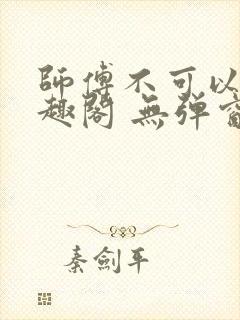 師傅不可以
趣閣 無弹窗
秦劍平